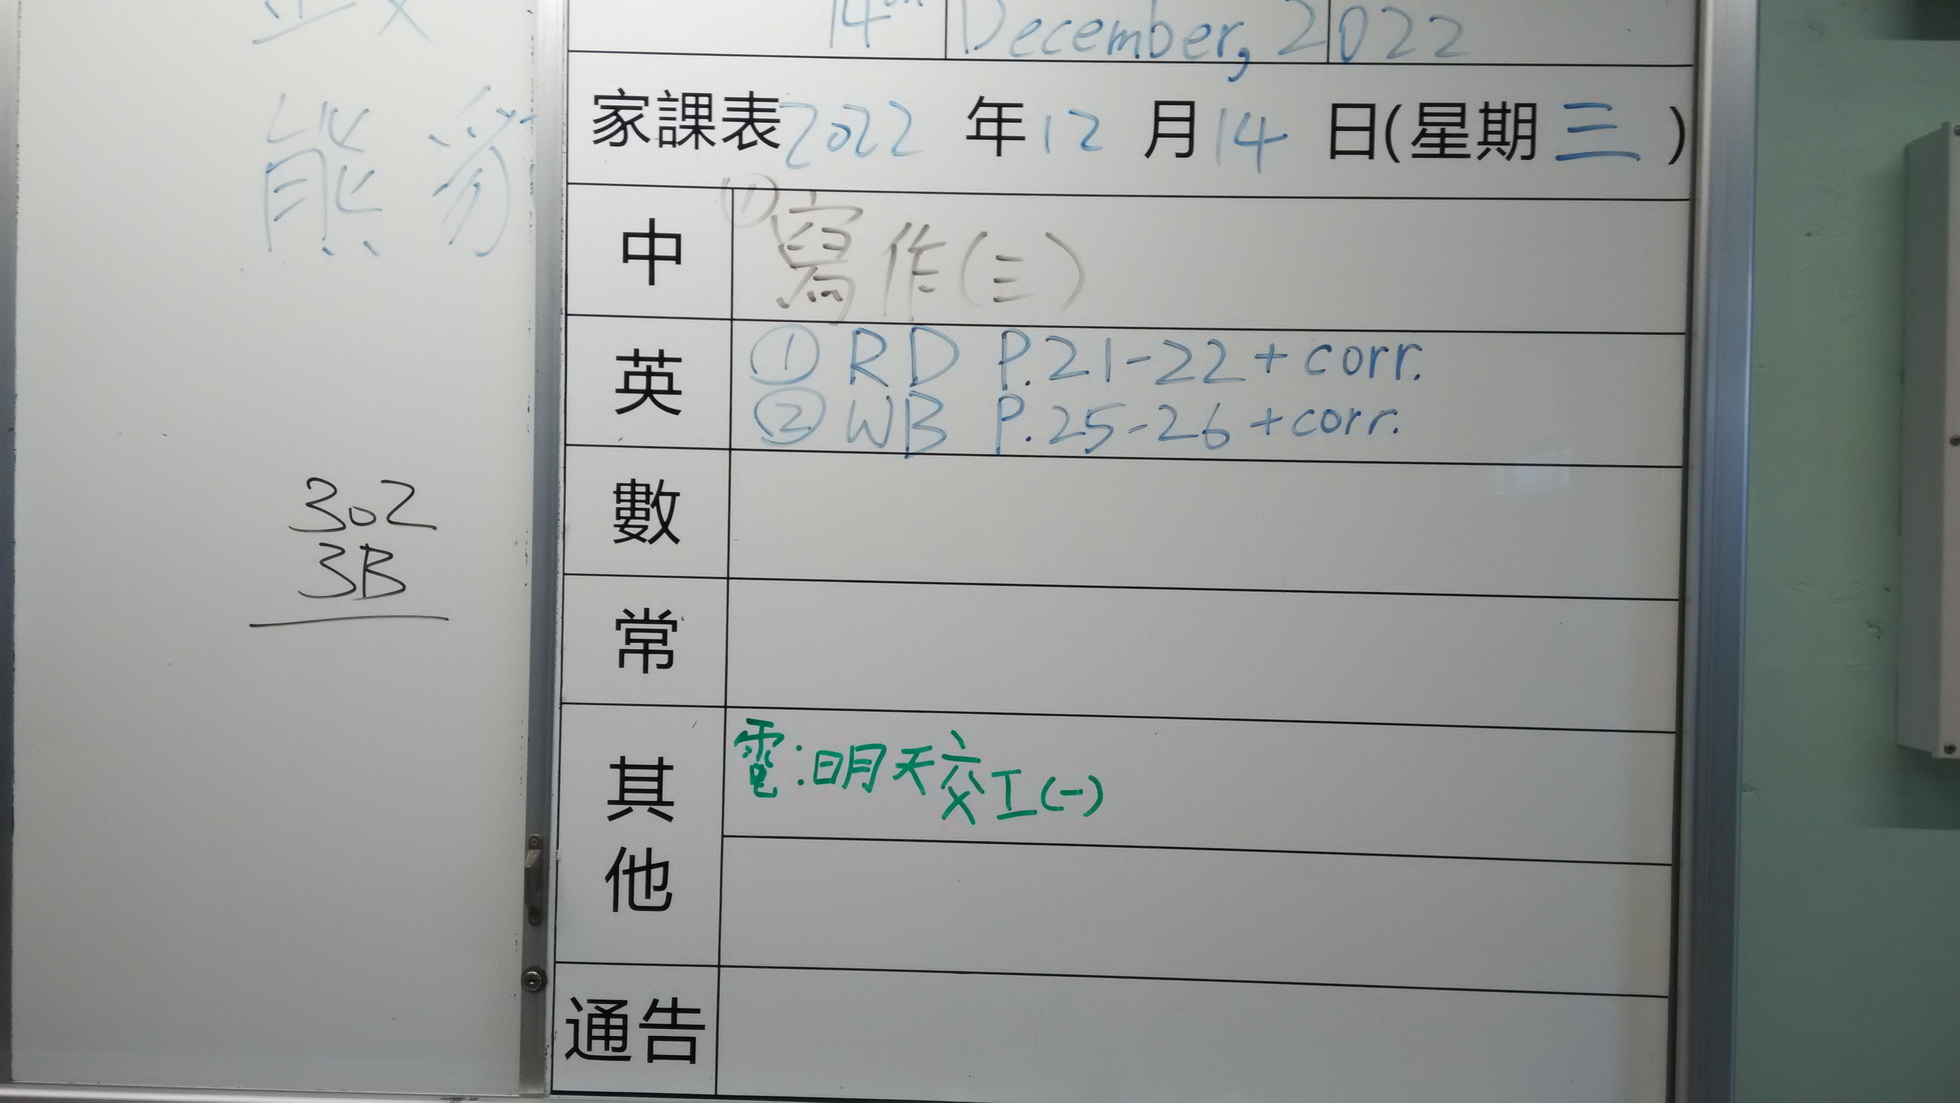 14th December, 2022
家課表 2022 年 12 月 14 日(星期三)
中 ①寫作(三)
英 ① RD P.21-22 + corr.
② WB P.25-26 + corr.
數
常
其他 電:明天交工(一)
通告
熊
302
3B